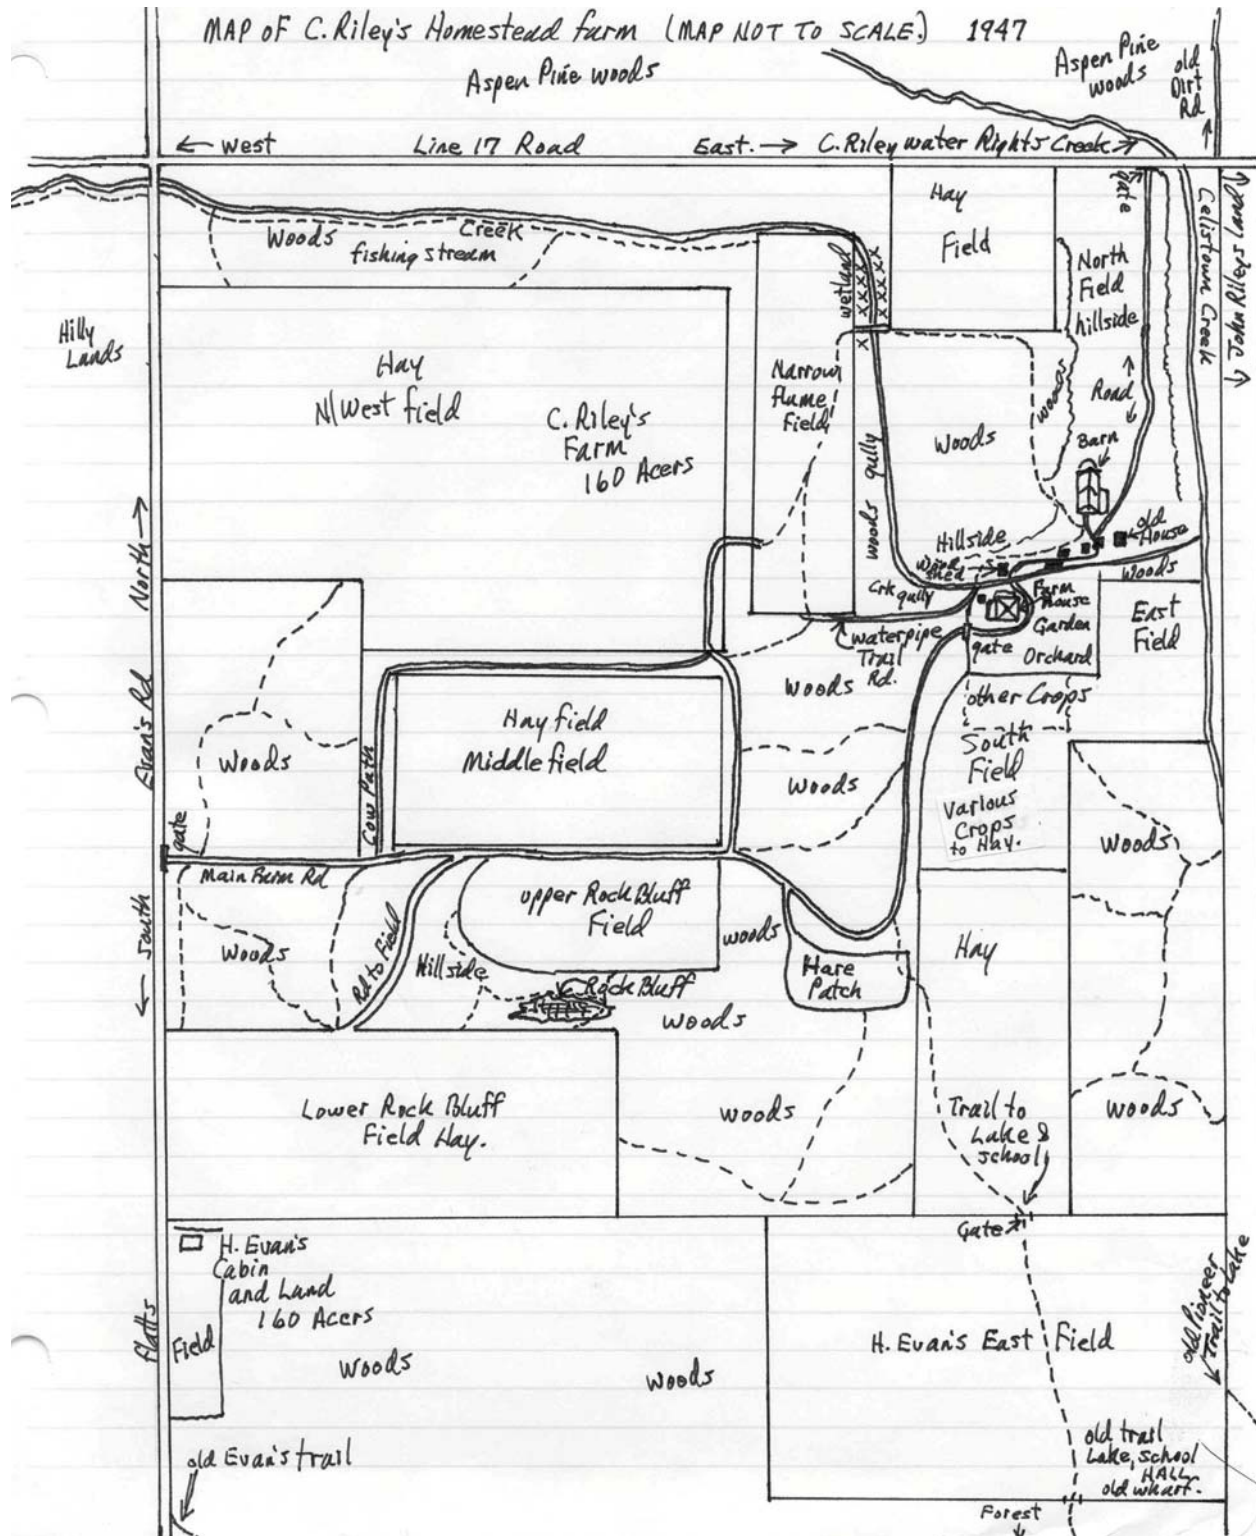 MAP OF C. Riley's Homestead farm (MAP NOT TO SCALE.) 1947
Aspen Pine woods
Aspen Pine
woods
old
Dirt
Rd
← West
Line 17 Road
East. →
C. Riley water Rights Creek
gate
Hay
Field
Woods
Creek
fishing stream
wetland
xxxx
xxxxx
x
North
Field
hillside
Celistown Creek
← John Riley's land →
Hilly
Lands
Hay
N/West field
C. Riley's
Farm
160 Acers
Narrow
flume
Field
gully
woods
Woods
woods
Road
Barn
old
House
Hillside
Wood
shed
Crk gully
Woods
Farm
House
Garden
Orchard
gate
East
Field
waterpipe
Trail
Rd.
Woods
other Crops
South
Field
Various
Crops
to Hay.
Evan's Rd North →
← South
Woods
gate
Cow Path
Hay field
Middle field
Woods
Woods
Main Farm Rd
Woods
Rd to Field
Hillside
upper Rock Bluff
Field
Rock Bluff
woods
Hare
Patch
Hay
Woods
Lower Rock Bluff
Field Hay.
Woods
Trail to
Lake &
school
Woods
Gate
H. Evan's
Cabin
and Land
160 Acers
Field
flatts
Woods
Woods
H. Evan's East Field
old Pioneer
Trail to Lake
old Evan's trail
old trail
Lake, school
HALL
old wharf.
Forest